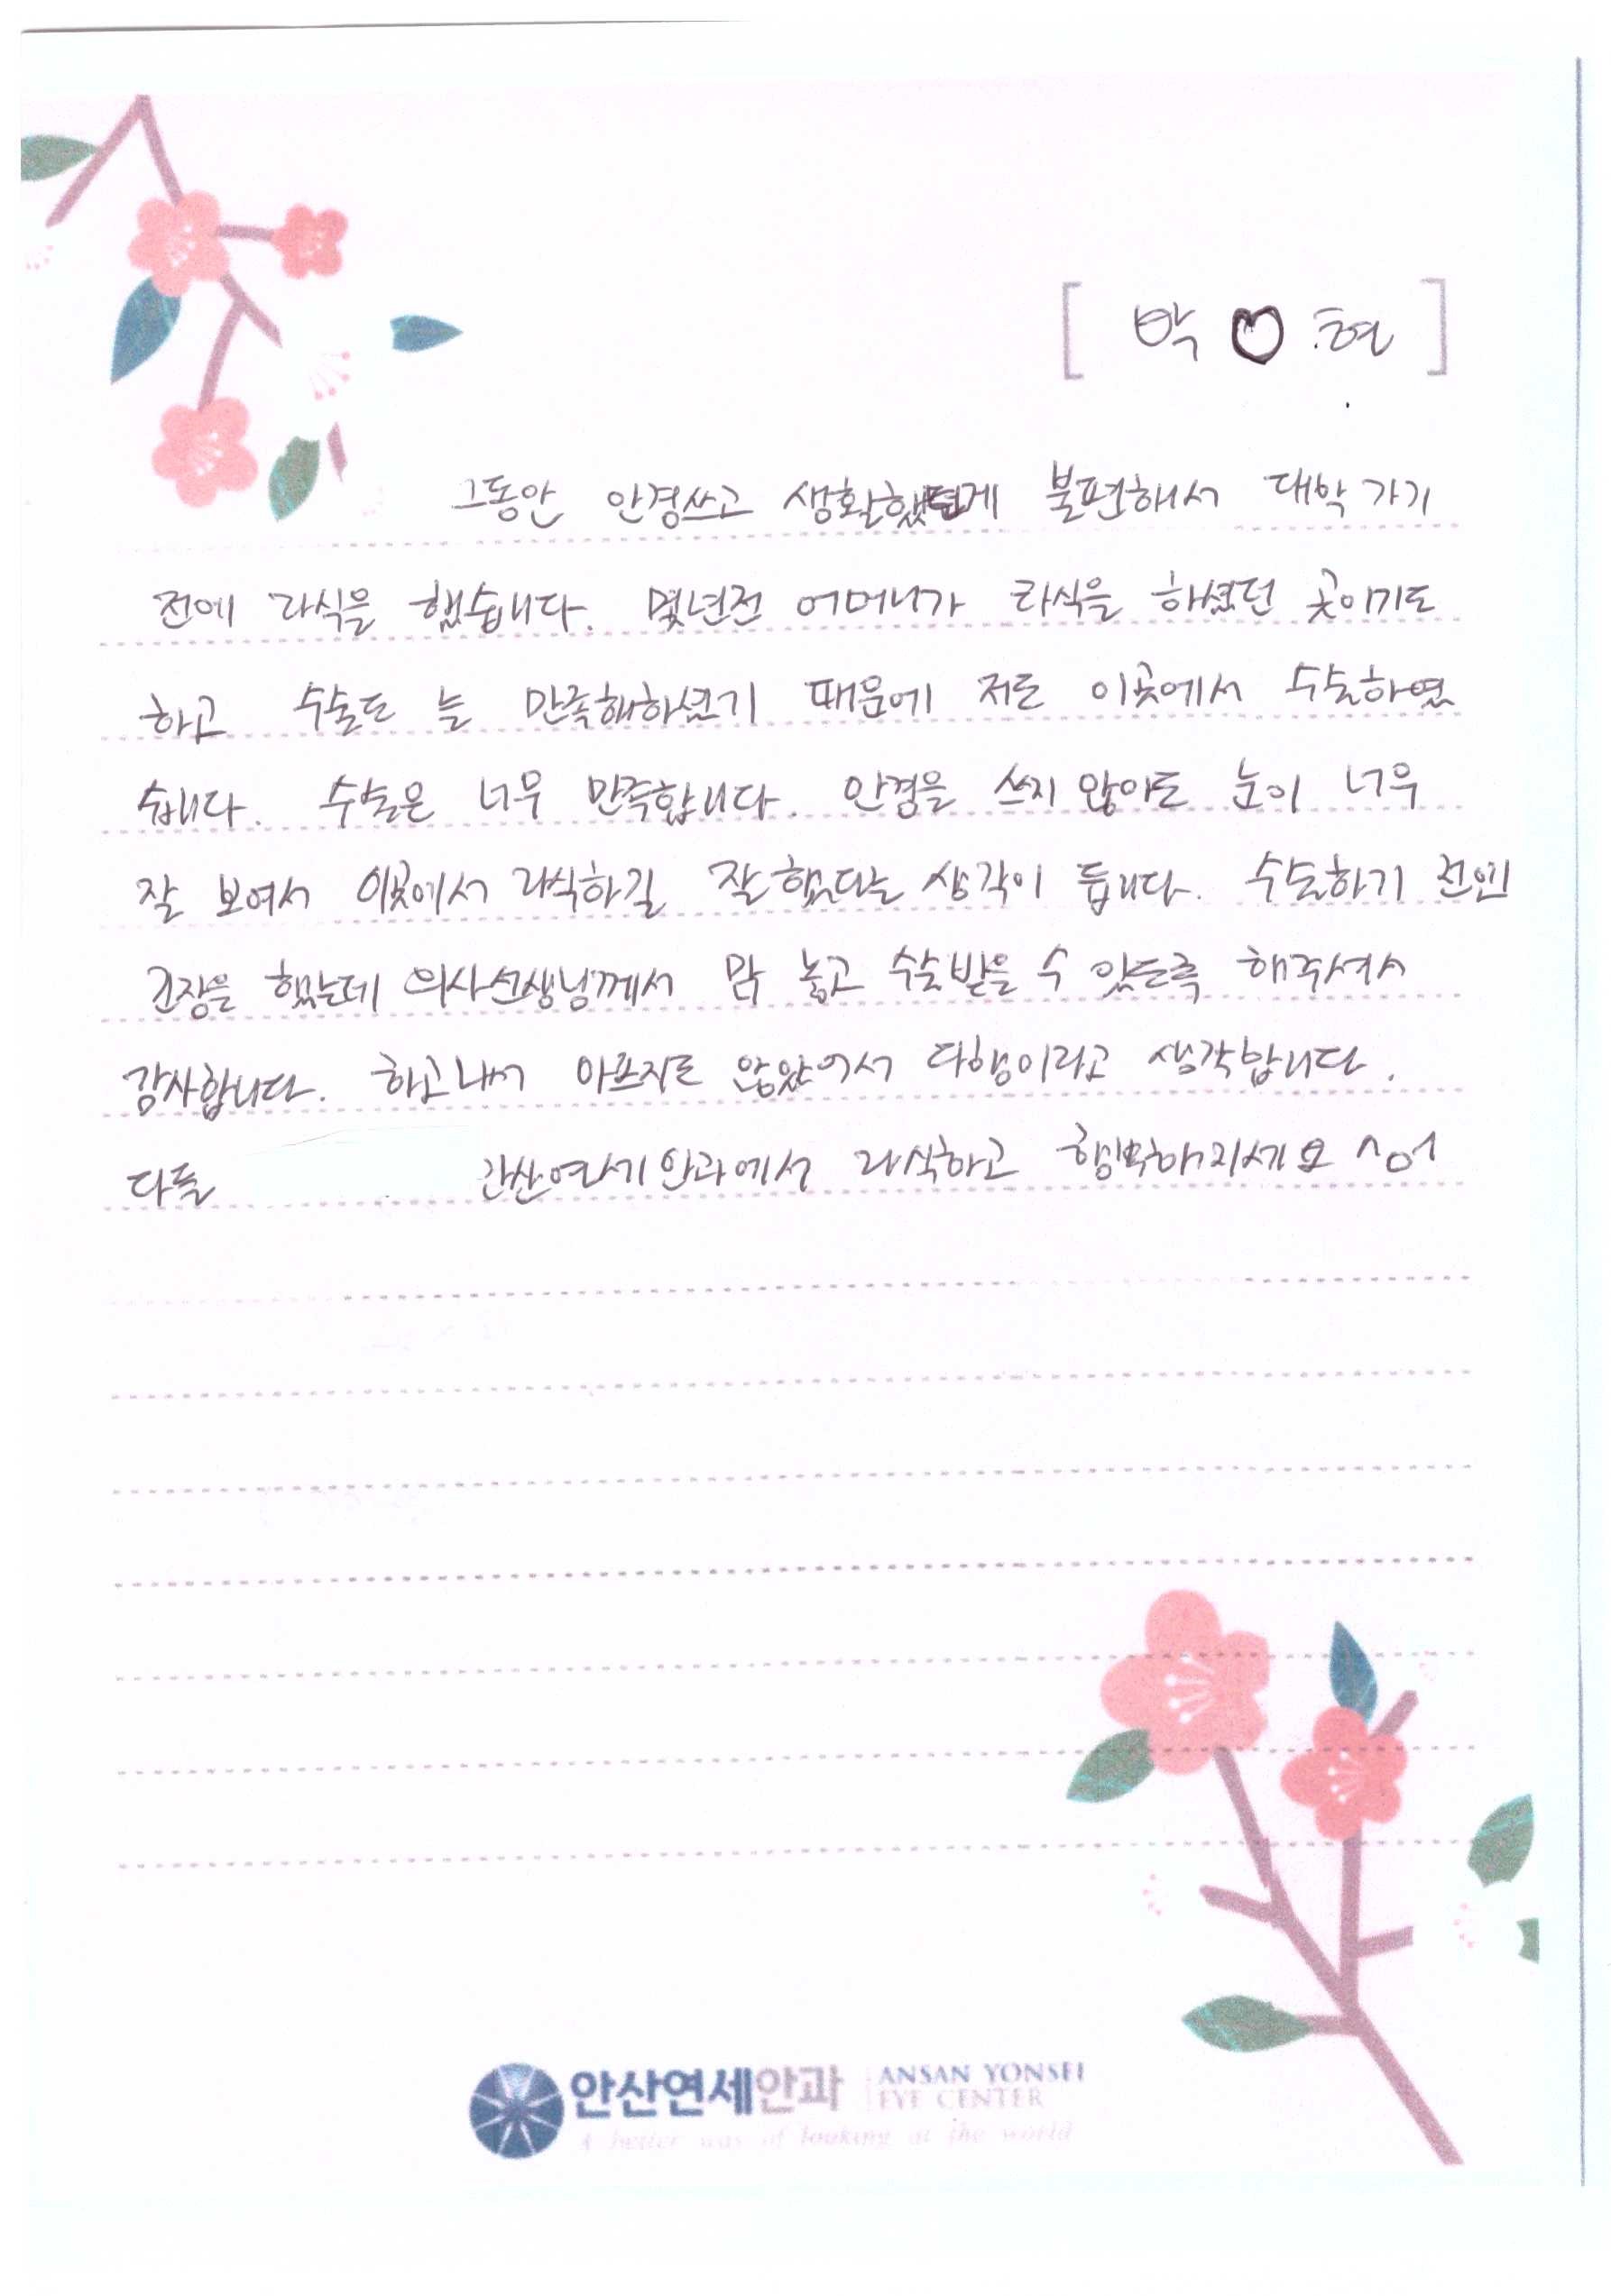 [ 박 ♡ 현 ]
그동안 안경쓰고 생활했던게 불편해서 대학 가기
전에 라식을 했습니다. 몇년전 어머니가 라식을 하셨던 곳이기도
하고 수술도 늘 만족해하셨기 때문에 저도 이곳에서 수술하였
습니다. 수술은 너무 만족합니다. 안경을 쓰지 않아도 눈이 너무
잘 보여서 이곳에서 라식하길 잘했다는 생각이 듭니다. 수술하기 전엔
긴장을 했는데 의사선생님께서 맘 놓고 수술받을 수 있도록 해주셔서
감사합니다. 하고나서 아프지도 않았어서 다행이라고 생각합니다.
다들 안산연세안과에서 라식하고 행복해지세요 ^o^
안산연세안과 ANSAN YONSEI
EYE CENTER
A better way of looking at the world